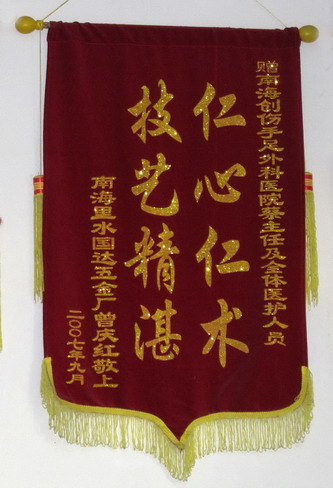 赠南海创伤手足外科医院蔡主任及全体医护人员
仁心仁术
技艺精湛
南海里水国达五金厂曾庆红敬上
二〇〇七年九月